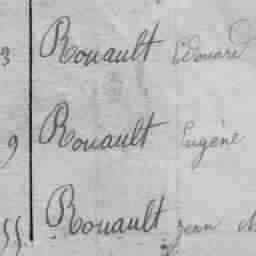 3 Rouault Edouard
9 Rouault Eugène
55. Rouault Jean